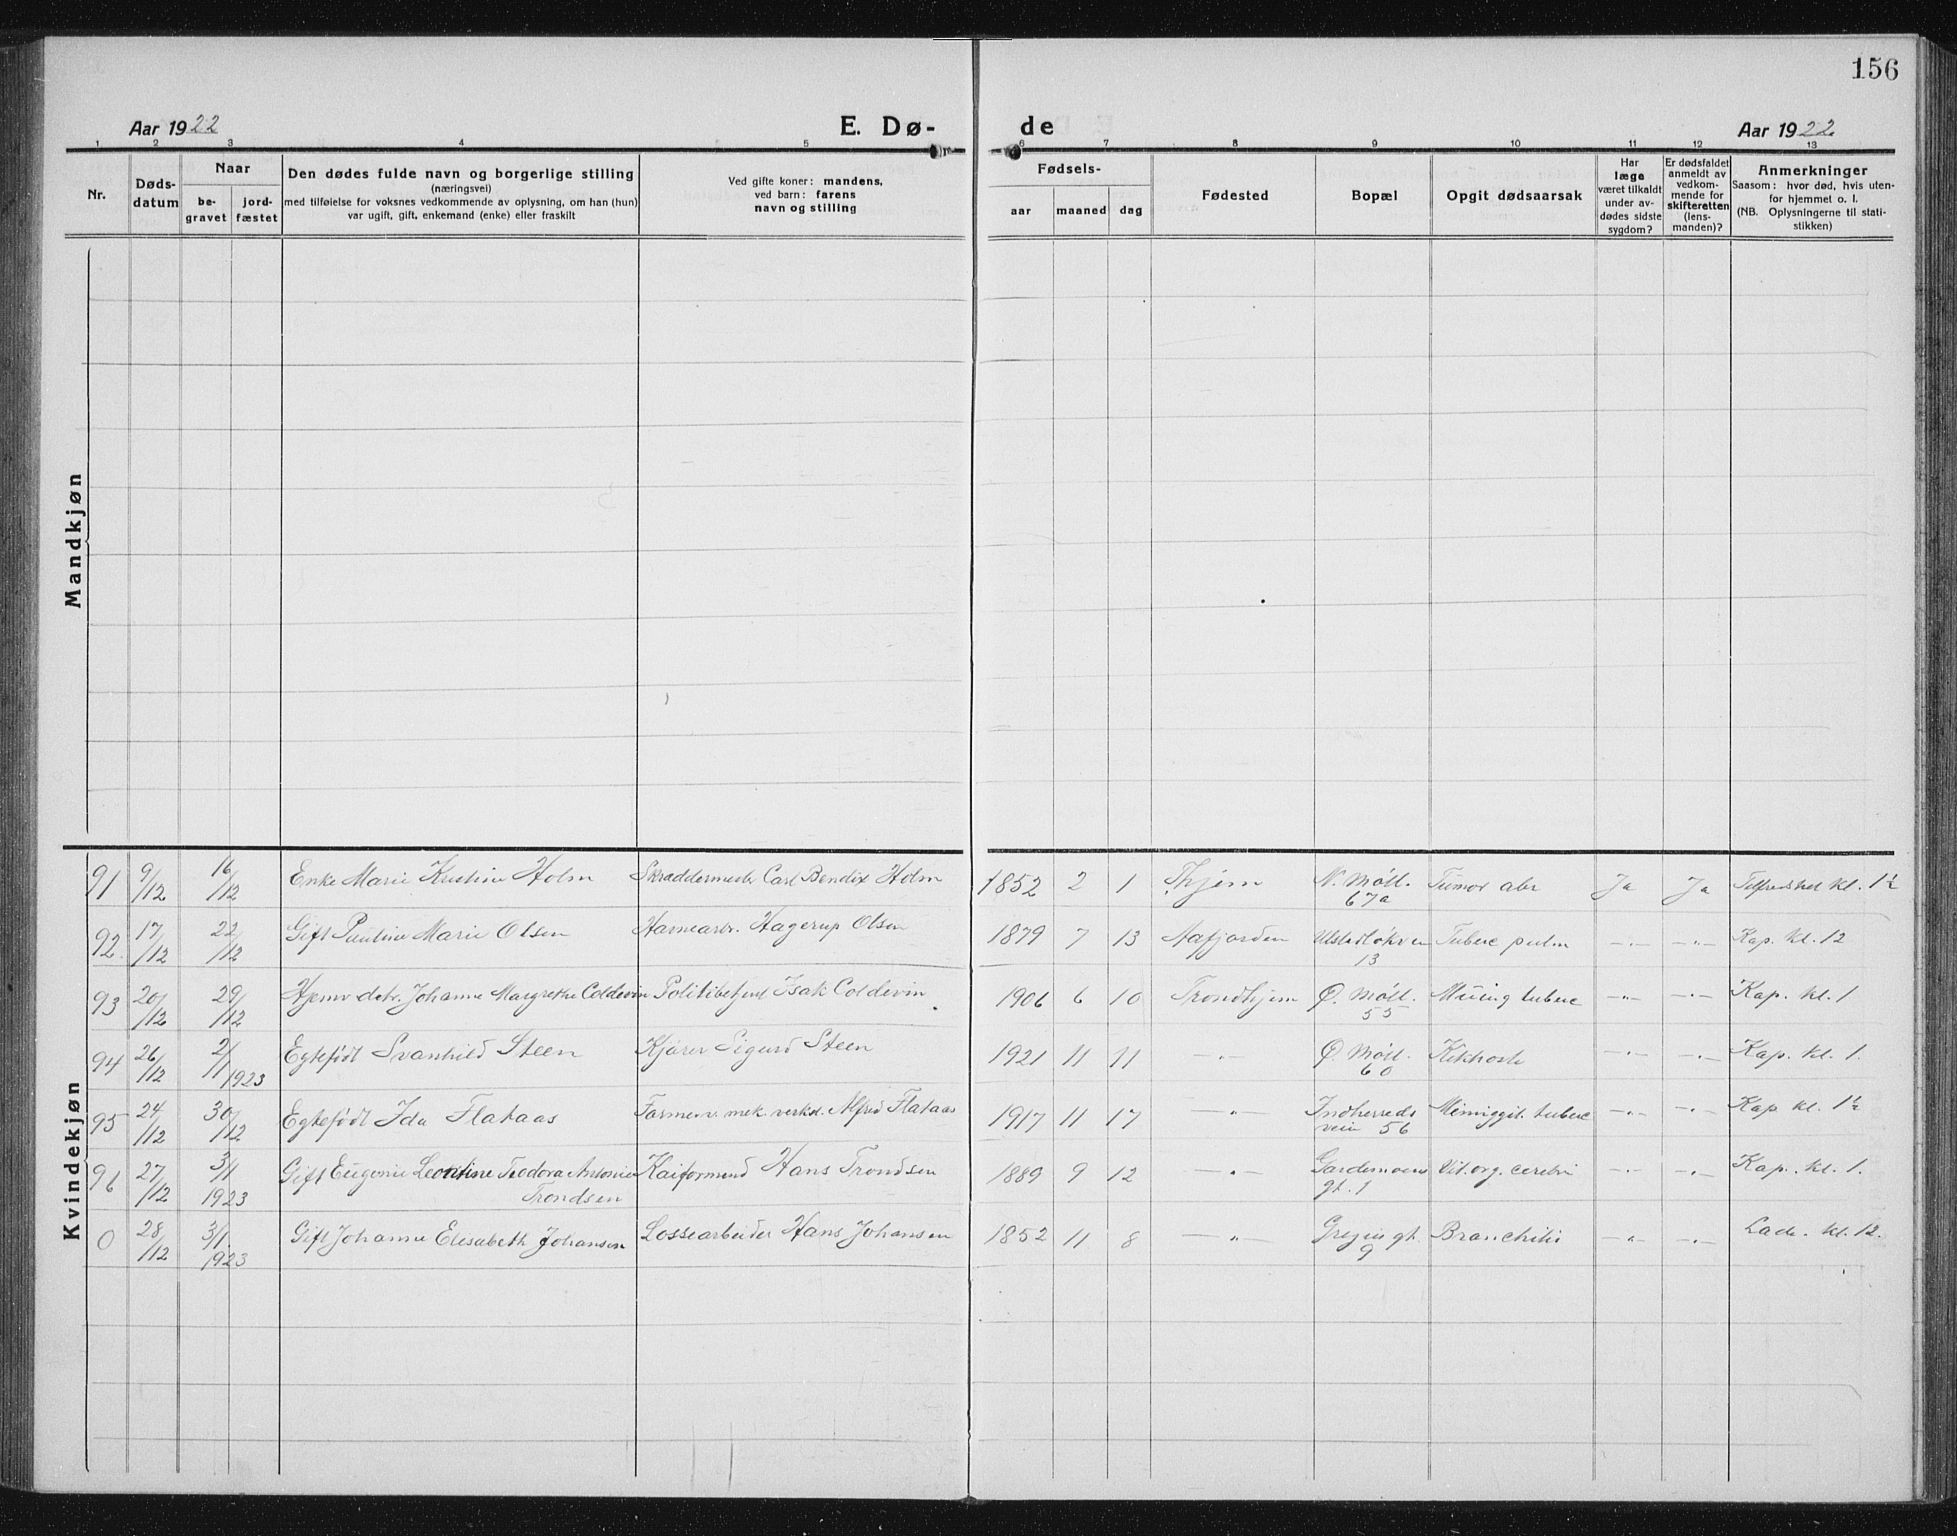 156
Aar 1922 E. Dø- de Aar 1922
1 2 3 4 5 6 7 8 9 10 11 12 13
Nr.
Døds-
datum
Naar
be-
gravet
jord-
fæstet
Den dødes fulde navn og borgerlige stilling
(næringsvei)
med tilføielse for voksnes vedkommende av oplysning, om han (hun)
var ugift, gift, enkemand (enke) eller fraskilt
Ved gifte koner: mandens,
ved barn: farens
navn og stilling
Fødsels-
aar maaned dag
Fødested
Bopæl
Opgit dødsaarsak
Har
læge
været tilkaldt
under av-
dødes sidste
sygdom?
Er dødsfaldet
anmeldt av
vedkom-
mende for
skifteretten
(lens-
manden)?
Anmerkninger
Saasom: hvor død, hvis uten-
for hjemmet o. l.
(NB. Oplysningerne til stati-
stikken)
Mandkjøn
Kvindekjøn
91 9/12 16/12 Enke Marie Kristine Holm Skræddermester Carl Bendix Holm 1852 2 1 Thjem N. Møll. 67a Tumor abr Ja Ja Tilfredshet kl. 1½
92. 17/12 22/12 Gift Pauline Marie Olsen Havnearb. Hagerup Olsen 1879 7 13 Aafjorden Ulstadløkvn 13 Tuberc pulm -"- -"- Kap. kl. 12
93 20/12 29/12 Hjemv. datr. Johanne Margrethe Coldevin Politibetjent Isak Coldevin 1906 6 10 Trondhjem Ø. Møll. 55 Mening tuberc -"- -"- Kap. kl. 1
94 26/12 2/1 1923 Egtefødt Svanhild Steen Kjører Sigurd Steen 1921 11 11 -"- Ø. Møll. 60 Kikhoste -"- -"- Kap. kl. 1.
95 24/12 30/12 Egtefødt Ida Flataas Formerv. mek. verksd. Alfred Flataas 1917 11 17 -"- Indherreds veien 56 Meninggit. tuberc -"- -"- Kap kl. 1½
96 27/12 3/1 1923 Gift Eugenie Leontine Teodora Antonie Trondsen Kaiformand Hans Trondsen 1889 9 12 -"- Gardemoens gt. 1 Vit. org. cerebri -"- -"- Kap. kl. 1.
0 28/12 3/1. 1923 Gift Johanne Elisabeth Johansen Lossearbeider Hans Johansen 1852 11 8 -"- Gregus gt. 9 Bronchitis -"- -"- Lade. kl. 12.